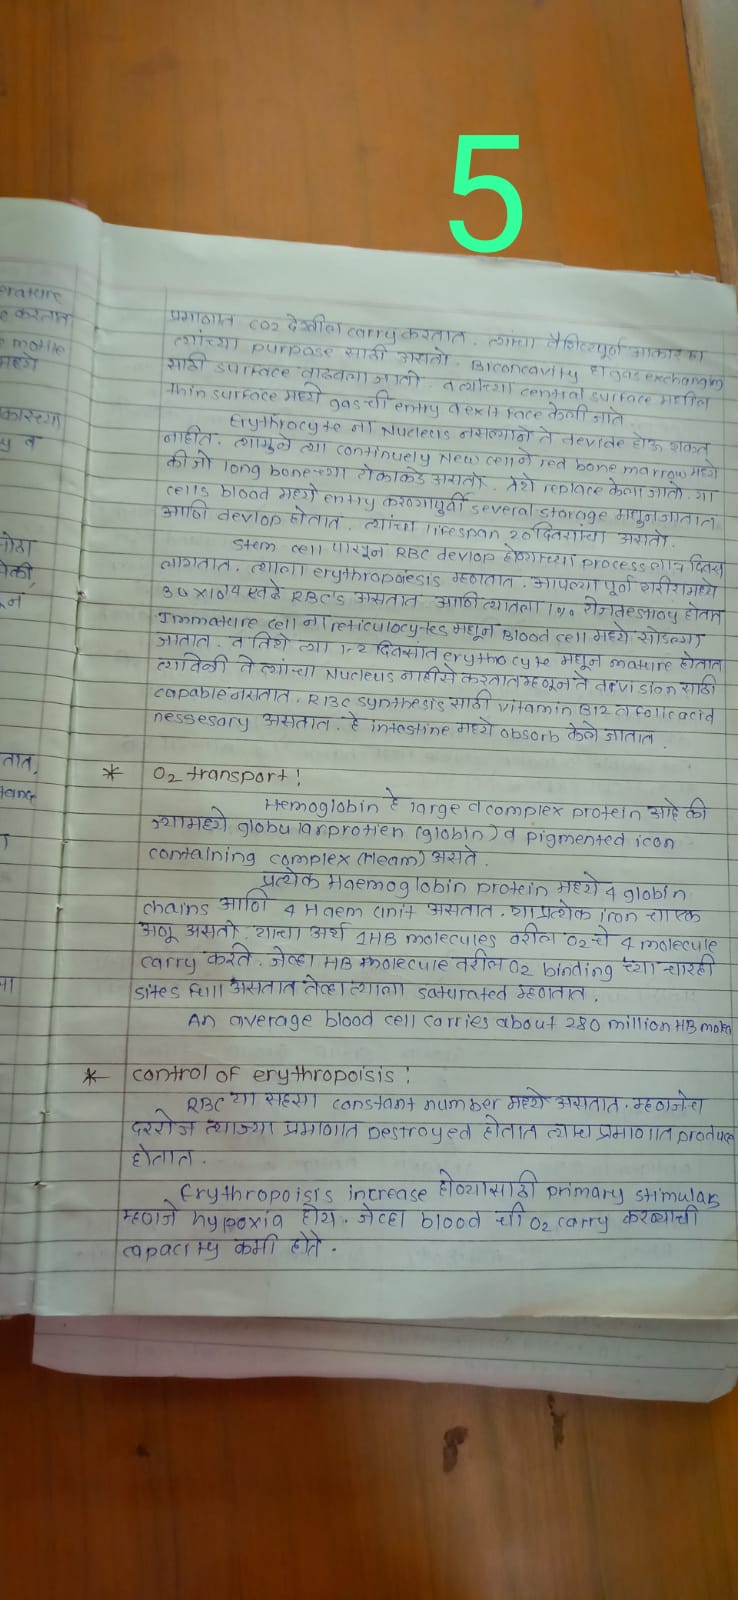 5
erature
करतात
motile
मध्ये
y व
तात.
tance
प्रमाणात CO2 देखील carry करतात. त्यांचा वैशिष्ट्यपूर्ण आकार हा
त्यांच्या purpose साठी असतो. Biconcavity ही gas exchanging
साठी surface वाढवला जातो. व त्यांच्या central surface मधील
thin surface मध्ये gas ची entry व exit केली जाते.
Erythrocyte ना Nucleus नसल्याने ते devide होऊ शकत
नाहीत. त्यामुळे त्या continuely New cell ने red bone marrow मध्ये
की जो long bone च्या टोकाकडे असतो. तेथे replace केला जातो. या
cells blood मध्ये entry करण्यापूर्वी several storage मधून जातात
आणि devlop होतात. त्यांचा lifespan 20 दिवसांचा असतो.
Stem cell पासून RBC devlop होण्याच्या process ला 7 दिवस
लागतात. त्याला erythropoiesis म्हणतात. आपल्या पूर्ण शरीरामध्ये
30 x10/4 एवढे RBC's असतात आणि त्यातला 1% रोज destroy होतात
Immature cell ना reticulocytes मधून Blood cell मध्ये सोडल्या
जातात. व तिथे त्या 1-2 दिवसांत erythrocyte मधून mature होतात
त्यावेळी ते त्यांचा Nucleus नाहीसे करतात म्हणून ते division साठी
capable नसतात. RBC synthesis साठी vitamin B12 व folic acid
nessesory असतात. हे intestine मध्ये absorb केले जातात.
* O2 transport!
Hemoglobin हे large व complex protein आहे की
ज्यामध्ये globularprotien (globin) व pigmented icon
containing complex (Heam) असते.
प्रत्येक Haemoglobin protein मध्ये 4 globin
chains आणि 4 Haem Unit असतात. या प्रत्येक iron चा एक
अणू असतो. याचा अर्थ 1HB molecules वरील O2 चे 4 molecule
carry करते. जेव्हा HB molecule वरील O2 binding च्या चारही
sites full असतात तेव्हा त्याला saturated म्हणतात.
An average blood cell carries about 280 million HB
* control of erythropoisis!
RBC या सहसा constant number मध्ये असतात. म्हणजेच
दररोज त्या ज्या प्रमाणात Destroyed होतात त्याच प्रमाणात produce
होतात.
Erythropoisis increase होण्यासाठी primary stimulas
म्हणजे hypoxia होय. जेव्हा blood ची O2 carry करण्याची
capacity कमी होते.